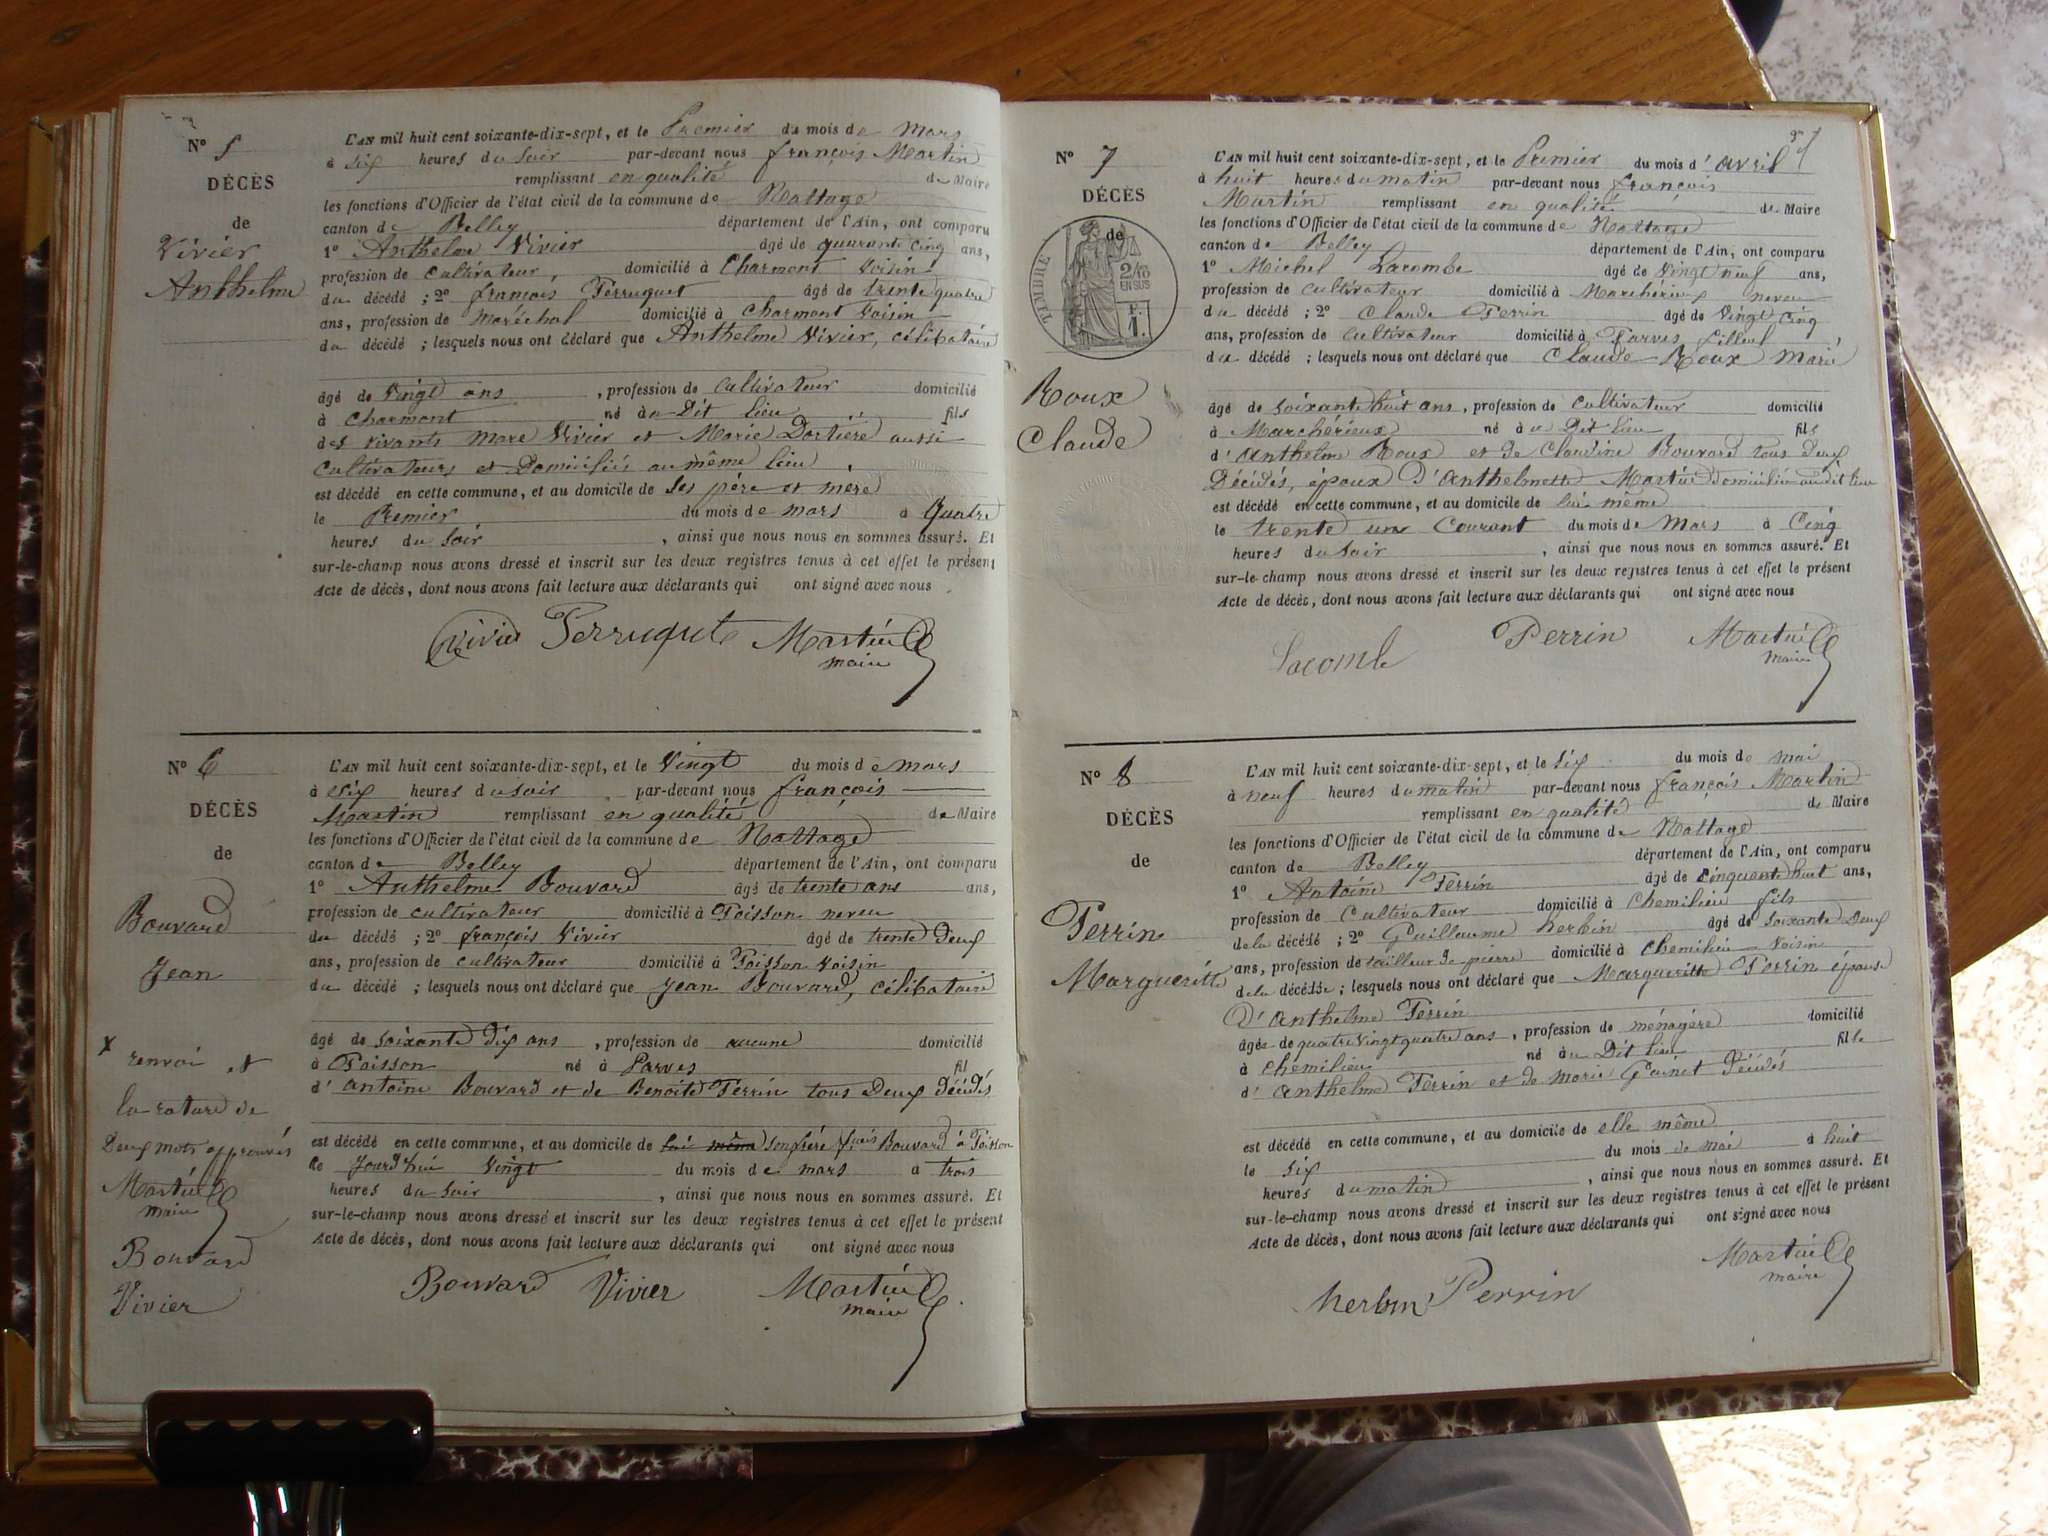 N° 5
DÉCÈS
de
Vivier
Anthelme
L'AN mil huit cent soixante-dix-sept, et le Premier du mois de mars
à six heures du soir par-devant nous françois Martin
remplissant en qualité de Maire
les fonctions d'Officier de l'état civil de la commune de Nattage
canton de Belley département de l'Ain, ont comparu
1° Anthelme Vivier âgé de quarante cinq ans,
profession de cultivateur, domicilié à Charmont voisin
du décédé ; 2° françois Perruquet âgé de trente quatre
ans, profession de Maréchal domicilié à Charmont voisin
du décédé ; lesquels nous ont déclaré que Anthelme Vivier, célibataire
âgé de vingt ans, profession de cultivateur domicilié
à Charmont né au Dit lieu fils
des vivants Marc Vivier et Marie Dortière aussi
cultivateurs et Domiciliés au même lieu,
est décédé en cette commune, et au domicile de ses père et mere
le Premier du mois de mars à Quatre
heures du soir, ainsi que nous nous en sommes assuré. Et
sur-le-champ nous avons dressé et inscrit sur les deux registres tenus à cet effet le présent
Acte de décès, dont nous avons fait lecture aux déclarants qui ont signé avec nous
Vivier Perruquet Martin
maire
N° 6
DÉCÈS
de
Bouvard
Jean
X
renvoi et
la rature de
Deux mots approuvés
Martin
maire
Bouvard
Vivier
L'AN mil huit cent soixante-dix-sept, et le Vingt du mois de mars
à six heures du soir par-devant nous françois
Martin remplissant en qualité de Maire
les fonctions d'Officier de l'état civil de la commune de Nattage
canton de Belley département de l'Ain, ont comparu
1° Anthelme Bouvard âgé de trente ans ans,
profession de cultivateur domicilié à Poisson neveu
du décédé ; 2° françois Vivier âgé de trente Deux
ans, profession de cultivateur domicilié à Poisson voisin
du décédé ; lesquels nous ont déclaré que Jean Bouvard, célibataire
âgé de soixante dix ans, profession de aucune domicilié
à Poisson né à Parves fil
d' antoine Bouvard et de Benoite Perrin tous Deux Décédés
est décédé en cette commune, et au domicile de lui même son frère fçois Bouvard à Poisson
le Jourd'hui Vingt du mois de mars à trois
heures du soir, ainsi que nous nous en sommes assuré. Et
sur-le-champ nous avons dressé et inscrit sur les deux registres tenus à cet effet le présent
Acte de décès, dont nous avons fait lecture aux déclarants qui ont signé avec nous
Bouvard Vivier Martin
maire
N° 7
DÉCÈS
de
TIMBRE
2/10
EN SUS
F.
1.
Roux
Claude
L'AN mil huit cent soixante-dix-sept, et le Premier du mois d' avril
à huit heures du matin par-devant nous françois
Martin remplissant en qualité de Maire
les fonctions d'Officier de l'état civil de la commune de Nattage
canton de Belley département de l'Ain, ont comparu
1° Michel Lacombe âgé de vingt neuf ans,
profession de cultivateur domicilié à Marchérieux neveu
du décédé ; 2° Claude Perrin âgé de vingt cinq
ans, profession de cultivateur domicilié à Parves filleul
du décédé ; lesquels nous ont déclaré que Claude Roux Marié
âgé de soixante huit ans, profession de cultivateur domicilié
à Marchérieux né au Dit lieu fils
d' anthelme Roux et de Claudine Bouvard tous deux
Décédés, époux D'Anthelmette Martin domiciliée au dit lieu
est décédé en cette commune, et au domicile de lui même
le trente un Courant du mois de Mars à Cinq
heures du soir, ainsi que nous nous en sommes assuré. Et
sur-le-champ nous avons dressé et inscrit sur les deux registres tenus à cet effet le présent
Acte de décès, dont nous avons fait lecture aux déclarants qui ont signé avec nous
Lacombe Perrin Martin
maire
N° 8
DÉCÈS
de
Perrin
Margueritte
L'AN mil huit cent soixante-dix-sept, et le six du mois de mai
à neuf heures du matin par-devant nous françois Martin
remplissant en qualité de Maire
les fonctions d'Officier de l'état civil de la commune de Nattage
canton de Belley département de l'Ain, ont comparu
1° Antoine Perrin âgé de cinquante huit ans,
profession de Cultivateur domicilié à Chemilieu fils
de la décédé ; 2° Guillaume herbin âgé de soixante Deux
ans, profession de tailleur de pierre domicilié à Chemilieu voisin
de la décédée ; lesquels nous ont déclaré que Margueritte Perrin épouse
D'anthelme Perrin
âgée de quatre vingt quatre ans, profession de ménagère domicilié
à Chemilieu né au Dit lieu fille
d' anthelme Perrin et de marie Décédés
est décédé en cette commune, et au domicile de elle même
le six du mois de mai à huit
heures du matin, ainsi que nous nous en sommes assuré. Et
sur-le-champ nous avons dressé et inscrit sur les deux registres tenus à cet effet le présent
Acte de décès, dont nous avons fait lecture aux déclarants qui ont signé avec nous
herbin Perrin Martin
maire